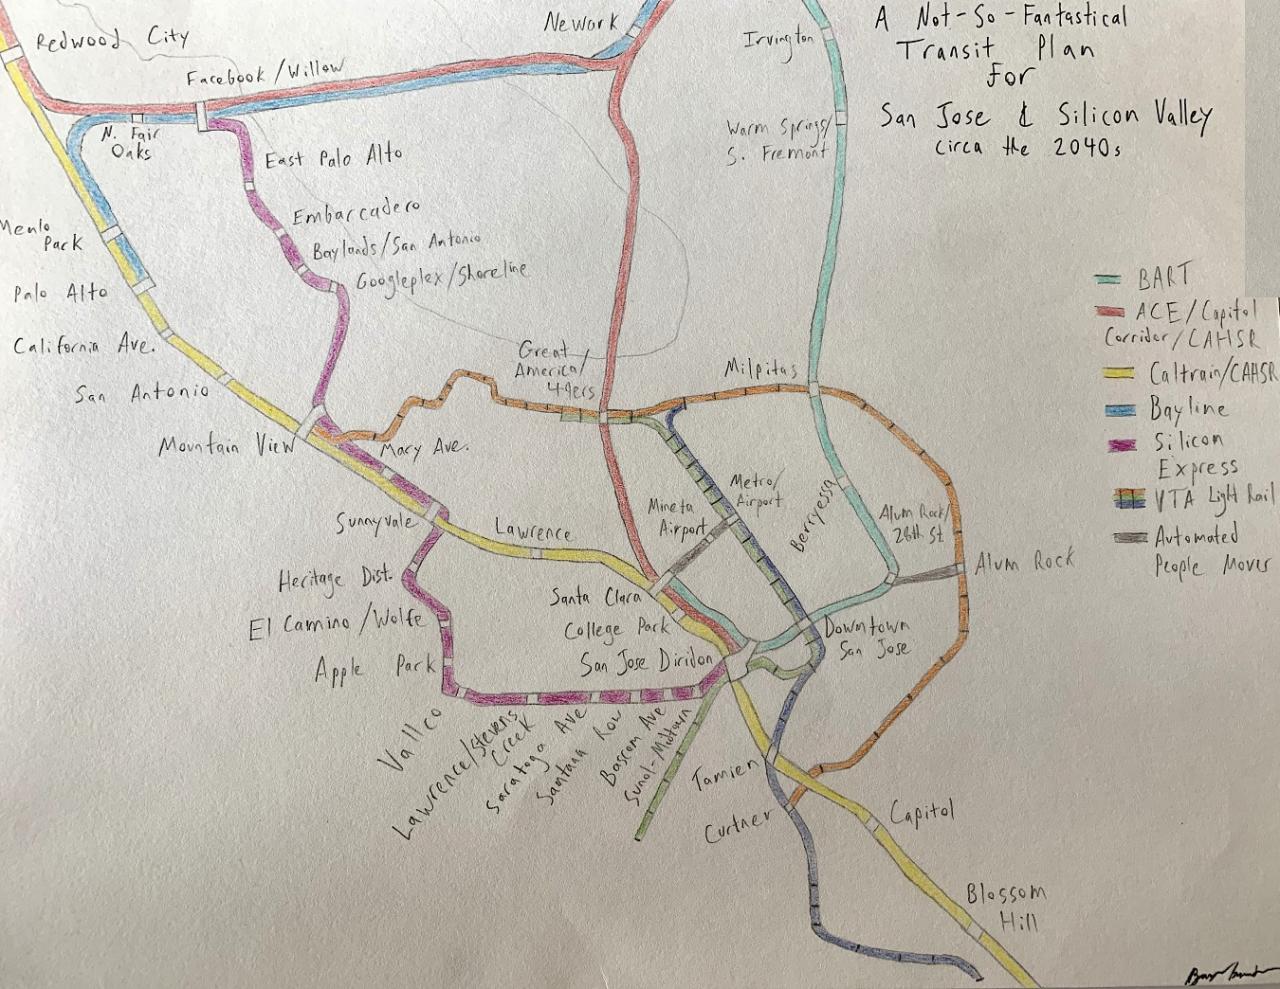 A Not-So-Fantastical
Transit Plan
For
San Jose & Silicon Valley
circa the 2040s
Redwood City
Facebook/Willow
Newark
Irvington
N. Fair
Oaks
Warm Springs/
S. Fremont
East Palo Alto
Embarcadero
Baylands/San Antonio
Googleplex/Shoreline
Menlo
Park
Palo Alto
California Ave.
San Antonio
Mountain View
Mary Ave.
Great
America/
49ers
Milpitas
BART
ACE/Capitol
Corridor/CAHSR
Caltrain/CAHSR
Bayline
Silicon
Express
VTA Light Rail
Automated
People Mover
Sunnyvale
Lawrence
Mineta
Airport
Metro/
Airport
Berryessa
Alum Rock/
28th St
Alum Rock
Heritage Dist.
El Camino/Wolfe
Apple Park
Santa Clara
College Park
San Jose Diridon
Downtown
San Jose
Vallco
Lawrence/Stevens
Creek
Saratoga Ave
Santana Row
Bascom Ave
Sunol-Midtown
Tamien
Curtner
Capitol
Blossom
Hill